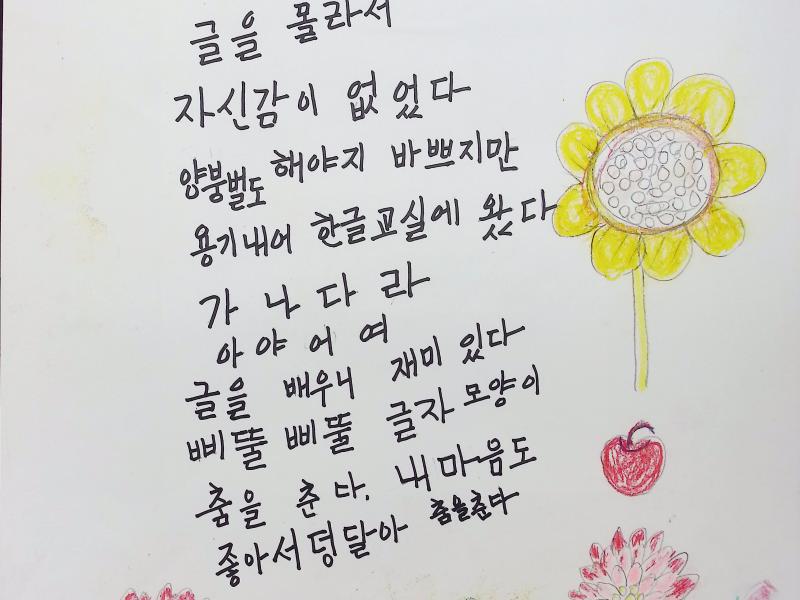 글을 몰라서
자신감이 없었다
양붕벌도 해야지 바쁘지만
용기내어 한글교실에 왔다
가 나 다 라
아 야 어 여
글을 배우니 재미 있다
삐뚤 삐뚤 글자 모양이
춤을 춘다. 내 마음도
좋아서 덩달아 춤을춘다